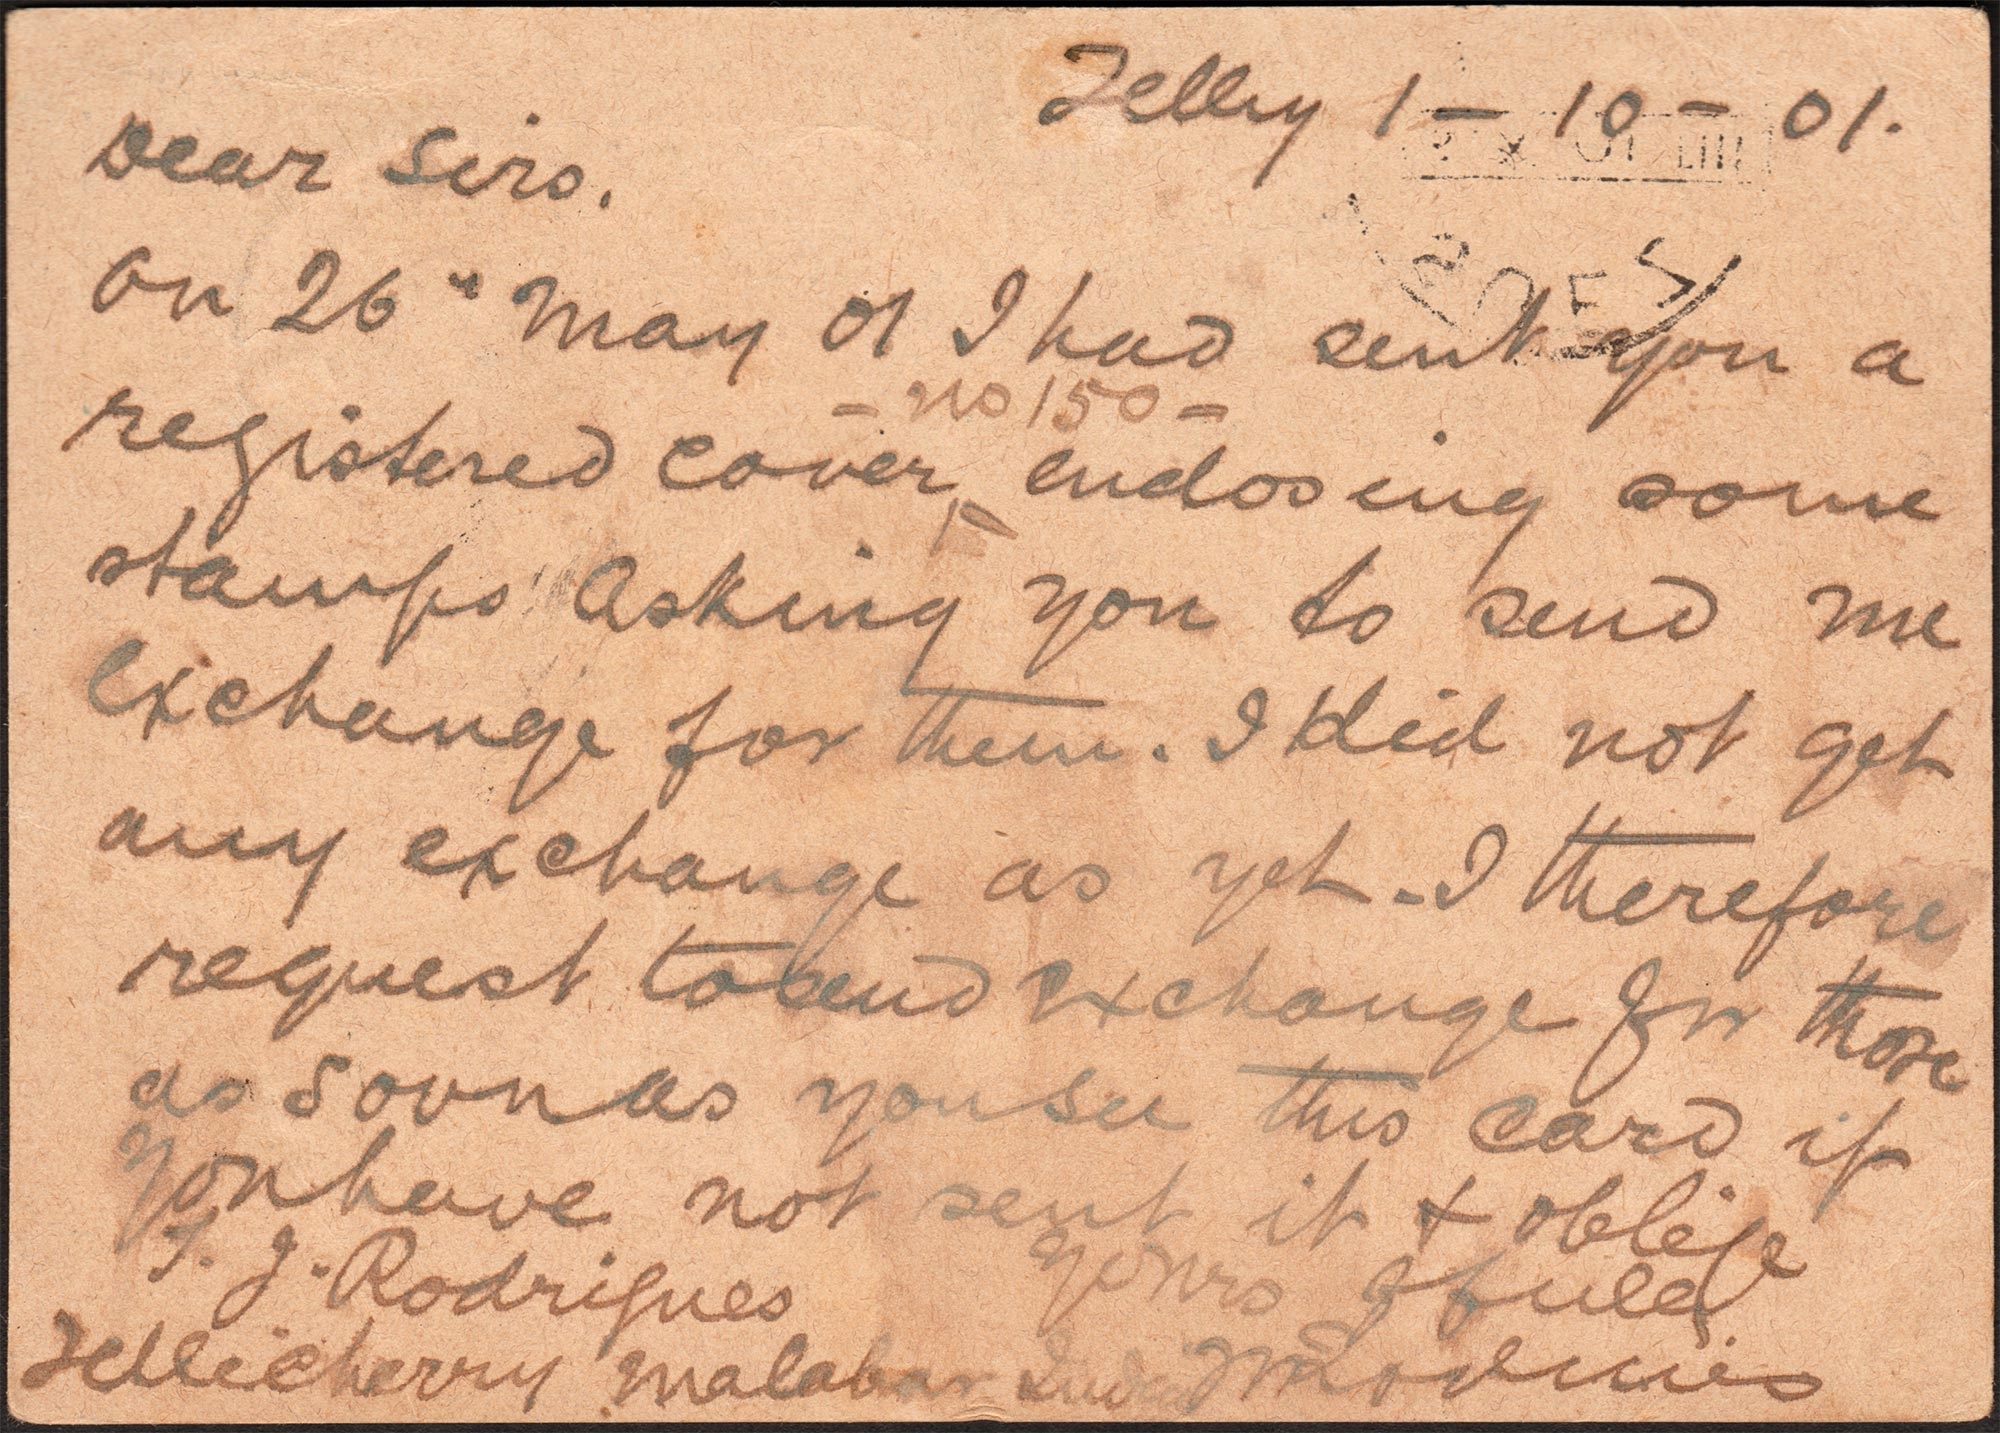 Telly 1 - 10 - 01.
Dear Sirs.
On 26" May 01 I had sent you a
- no 150 -
registered cover, enclosing some
stamps asking you to send me
exchange for them. I did not get
any exchange as yet. I therefore
request to send exchange for those
as soon as you see this card if
you have not sent it & oblige
T. J. Rodrigues Yours
Tellicherry Malabar India